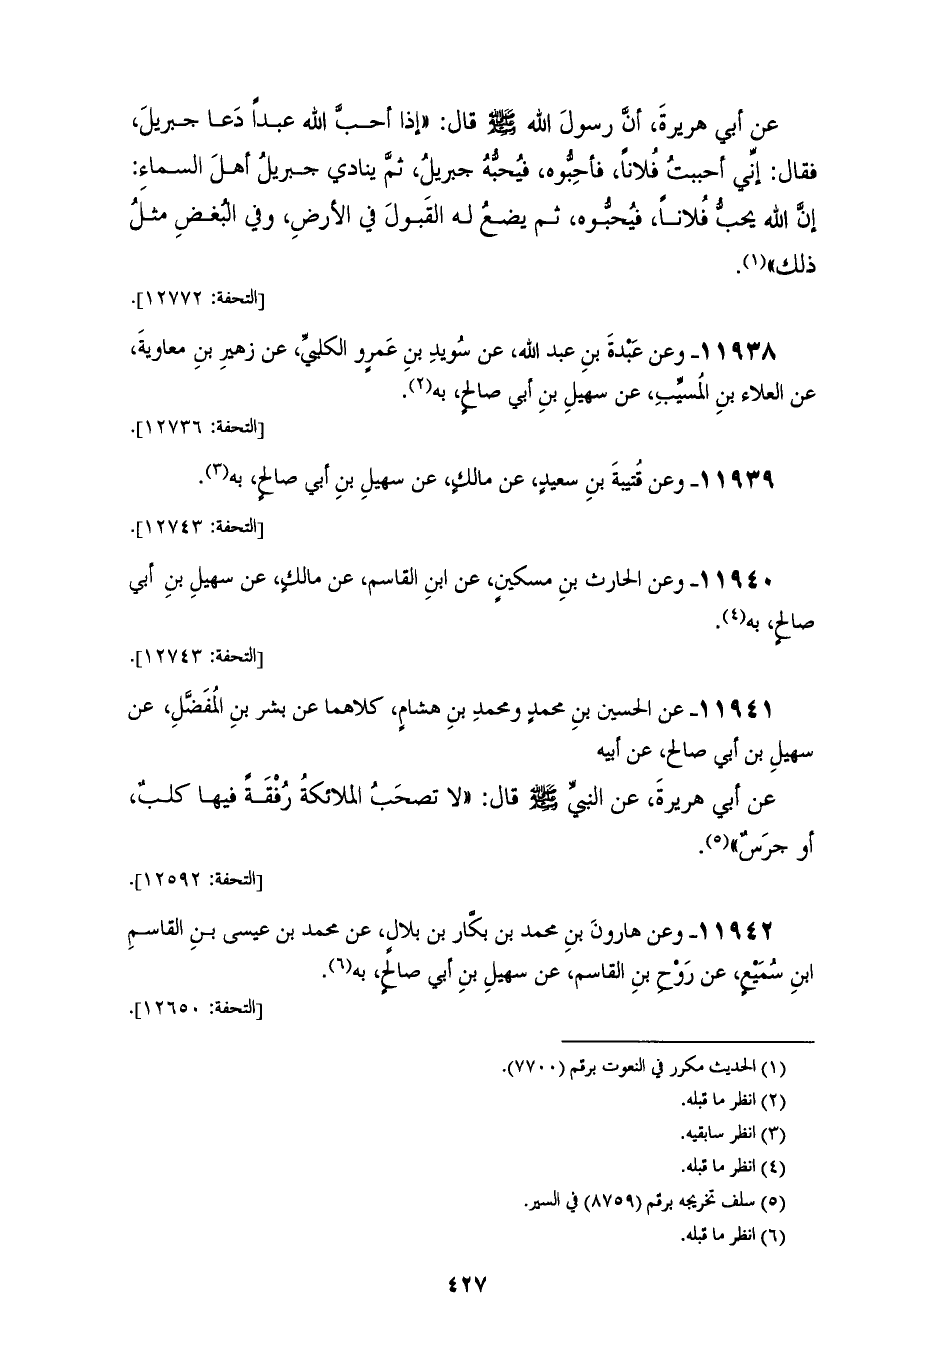 عن أبي هريرةَ، أنَّ رسولَ الله ﷺ قال: «إذا أحبَّ الله عبداً دَعا جبريلَ،
فقال: إنِّي أحببتُ فُلاناً، فأحِبُّوه، فيُحبُّهُ جبريلُ، ثمَّ ينادي جبريلُ أهلَ السماءِ:
إنَّ الله يحبُّ فُلاناً، فيُحبُّوه، ثم يضعُ له القَبولَ في الأرضِ، وفي البُغضِ مثلُ
ذلك»(١).
[التحفة: ١٢٧٧٢].
١١٩٣٨ـ وعن عَبْدةَ بنِ عبد الله، عن سُويدِ بنِ عَمرٍو الكلبيِّ، عن زهيرِ بنِ معاويةَ،
عن العلاء بنِ المُسيَّبِ، عن سهيلِ بنِ أبي صالحٍ، به(٢).
[التحفة: ١٢٧٣٦].
١١٩٣٩ـ وعن قُتيبةَ بنِ سعيدٍ، عن مالكٍ، عن سهيلِ بنِ أبي صالحٍ، به(٣).
[التحفة: ١٢٧٤٣].
١١٩٤٠ـ وعن الحارث بنِ مسكينٍ، عن ابنِ القاسم، عن مالكٍ، عن سهيلِ بنِ أبي
صالحٍ، به(٤).
[التحفة: ١٢٧٤٣].
١١٩٤١ـ عن الحسين بنِ محمدٍ ومحمدِ بنِ هشامٍ، كلاهما عن بشر بنِ المُفَضَّلِ، عن
سهيلِ بن أبي صالح، عن أبيه
عن أبي هريرةَ، عن النبيِّ ﷺ قال: «لا تصحَبُ الملائكةُ رُفْقَةً فيها كلبٌ،
أو جرَسٌ»(٥).
[التحفة: ١٢٥٩٢].
١١٩٤٢ـ وعن هارونَ بنِ محمد بن بكَّار بن بلالٍ، عن محمد بن عيسى بنِ القاسمِ
ابنِ سُمَيْعٍ، عن رَوْحِ بنِ القاسم، عن سهيلِ بنِ أبي صالحٍ، به(٦).
[التحفة: ١٢٦٥٠].
(١) الحديث مكرر في النعوت برقم (٧٧٠٠).
(٢) انظر ما قبله.
(٣) انظر سابقيه.
(٤) انظر ما قبله.
(٥) سلف تخريجه برقم (٨٧٥٩) في السير.
(٦) انظر ما قبله.
٤٢٧